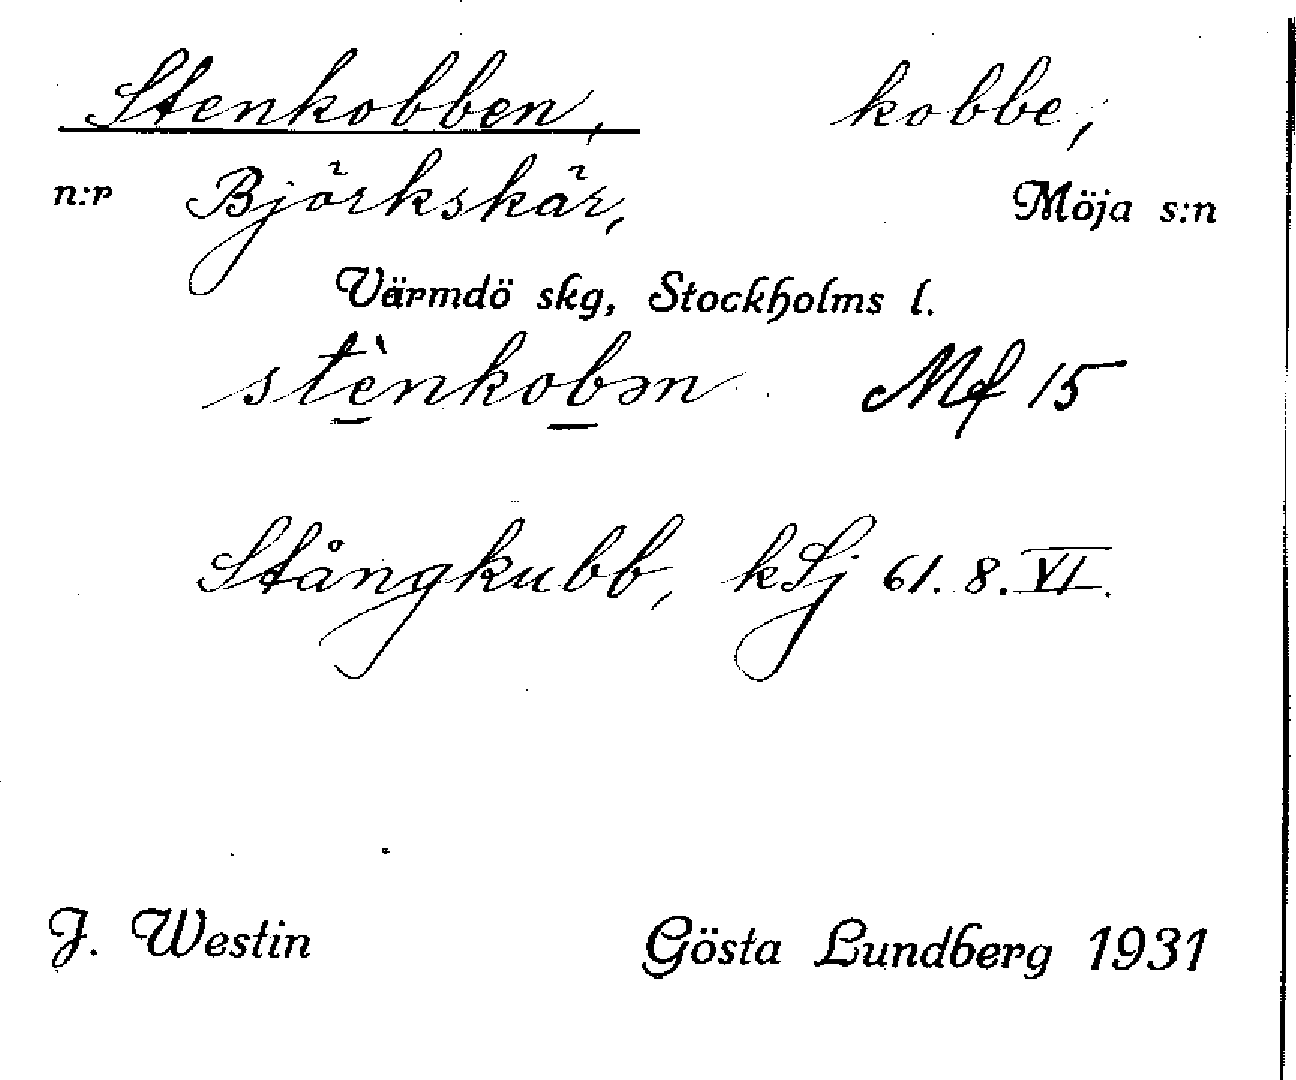 Stenkobben, kobbe,
n:r Björkskär, Möja s:n
Värmdö skg, Stockholms l.
stènkobən Mf 15
Stångkubb, kSj 61. 8. VI.
J. Westin Gösta Lundberg 1931